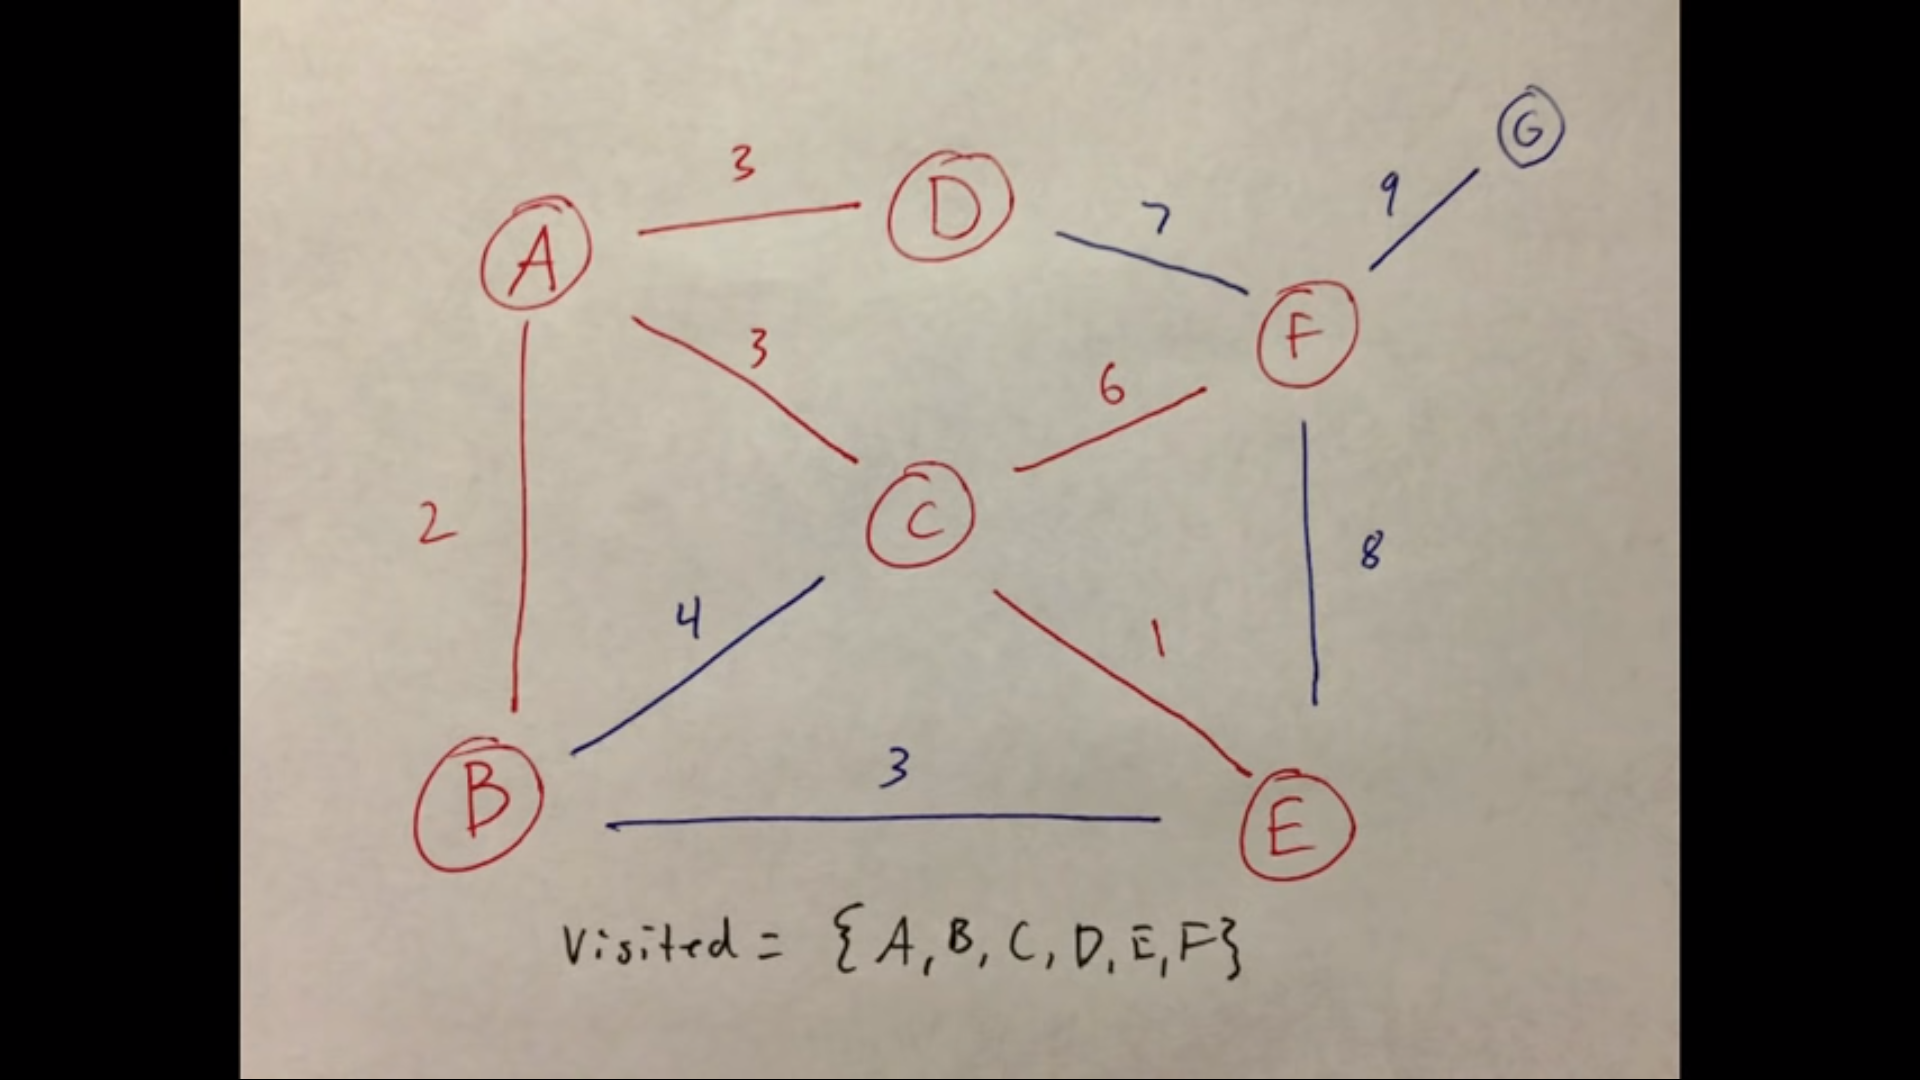 G
3
9
D
7
A
F
3
6
C
2
8
4
1
3
B
E
Visited = {A, B, C, D, E, F}